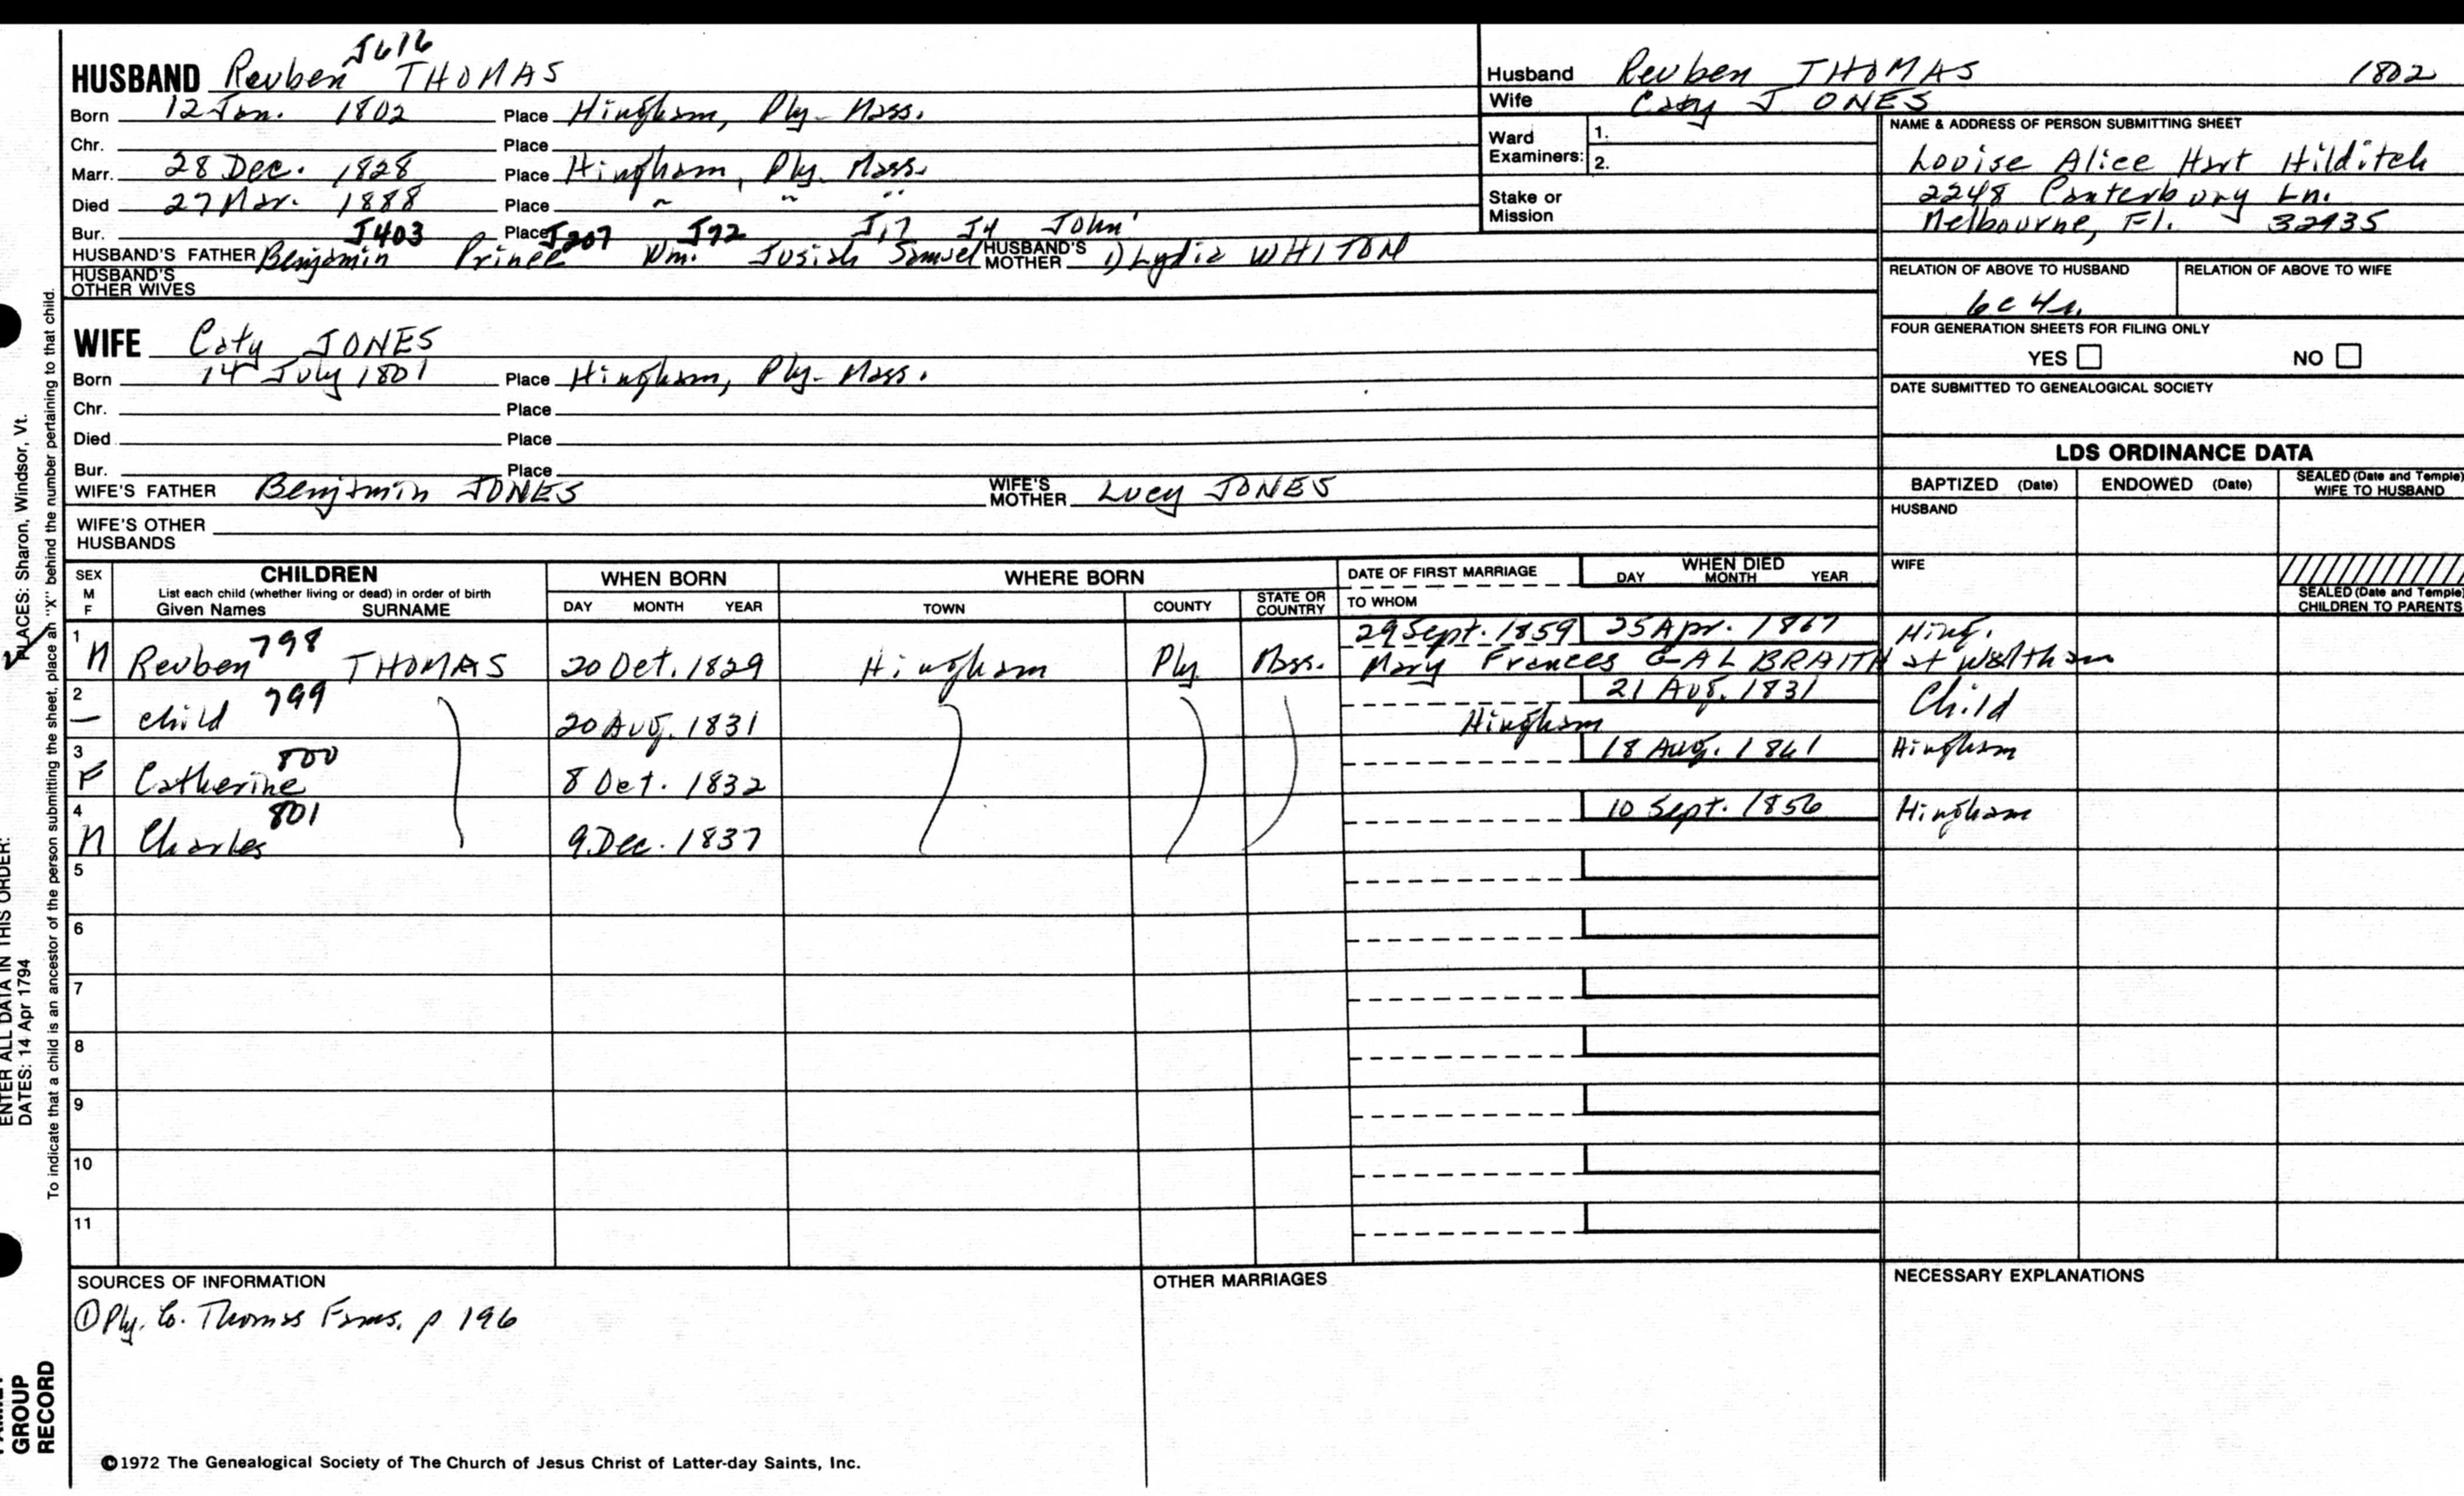 J616
HUSBAND Reuben THOMAS
Born 12 Jan. 1802 Place Hingham, Ply. Mass.
Chr. Place
Marr. 28 Dec. 1828 Place Hingham, Ply. Mass.
Died 27 Mar. 1888 Place " " "
Bur. Place
J403 J207 J72 J17 J4 John
HUSBAND'S FATHER Benjamin Prince Wm. Josiah Samuel HUSBAND'S MOTHER 1) Lydia WHITON
HUSBAND'S OTHER WIVES
WIFE Caty JONES
Born 14 July 1801 Place Hingham, Ply. Mass.
Chr. Place
Died Place
Bur. Place
WIFE'S FATHER Benjamin JONES WIFE'S MOTHER Lucy JONES
WIFE'S OTHER HUSBANDS
Husband Reuben THOMAS 1802
Wife Caty JONES
Ward Examiners: 1.
2.
Stake or Mission
NAME & ADDRESS OF PERSON SUBMITTING SHEET
Louise Alice Hart Hilditch
2248 Canterbury Ln.
Melbourne, Fl. 32935
RELATION OF ABOVE TO HUSBAND RELATION OF ABOVE TO WIFE
6c 4r.
FOUR GENERATION SHEETS FOR FILING ONLY
YES NO
DATE SUBMITTED TO GENEALOGICAL SOCIETY
LDS ORDINANCE DATA
BAPTIZED (Date) ENDOWED (Date) SEALED (Date and Temple) WIFE TO HUSBAND
HUSBAND
WIFE
SEALED (Date and Temple) CHILDREN TO PARENTS
SEX M F CHILDREN WHEN BORN WHERE BORN DATE OF FIRST MARRIAGE WHEN DIED
List each child (whether living or dead) in order of birth DAY MONTH YEAR
Given Names SURNAME DAY MONTH YEAR TOWN COUNTY STATE OR COUNTRY TO WHOM
1 798 29 Sept. 1859 25 Apr. 1867 Hing.
M Reuben THOMAS 20 Oct. 1829 Hingham Ply Mass. Mary Frances GALBRAITH at Waltham
2 799 21 Aug. 1831 Child
— child 20 Aug. 1831 Hingham
3 800 18 Aug. 1861 Hingham
F Catherine 8 Oct. 1832
4 801 10 Sept. 1856 Hingham
M Charles 9 Dec. 1837
5
6
7
8
9
10
11
SOURCES OF INFORMATION OTHER MARRIAGES NECESSARY EXPLANATIONS
① Ply. Co. Thomas Fams. p 196
©1972 The Genealogical Society of The Church of Jesus Christ of Latter-day Saints, Inc.
PLACES: Sharon, Windsor, Vt.
To indicate that a child is an ancestor of the person submitting the sheet, place an "X" behind the number pertaining to that child.
ENTER ALL DATA IN THIS ORDER:
DATES: 14 Apr 1794
GROUP
RECORD